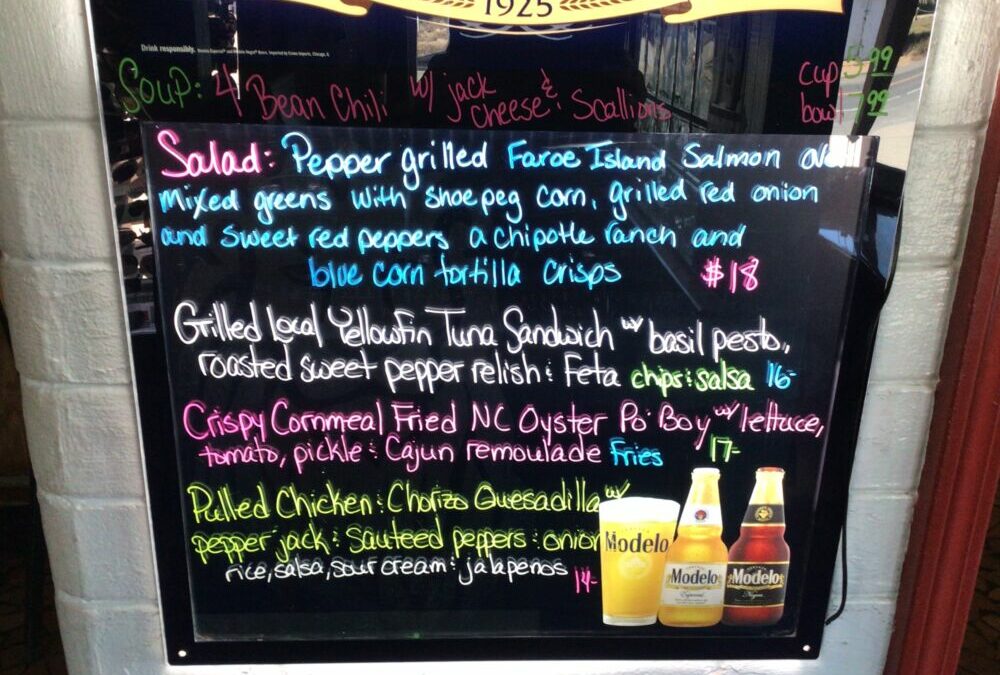 1925
Drink responsibly.
Soup: 4 Bean Chili w/ jack cheese & Scallions cup 5.99
bowl 7.99
Salad: Pepper grilled Faroe Island Salmon over
mixed greens with shoepeg corn, grilled red onion
and sweet red peppers a chipotle ranch and
blue corn tortilla crisps $18
Grilled Local Yellowfin Tuna Sandwich w/ basil pesto,
roasted sweet pepper relish & Feta chips & salsa 16-
Crispy Cornmeal Fried NC Oyster Po' Boy w/ lettuce,
tomato, pickle & Cajun remoulade Fries 17-
Pulled Chicken & Chorizo Quesadilla w/
pepper jack & Sauteed peppers & onion
rice, salsa, sour cream & jalapeños 14-
Modelo
Modelo
Especial
Modelo
Negra